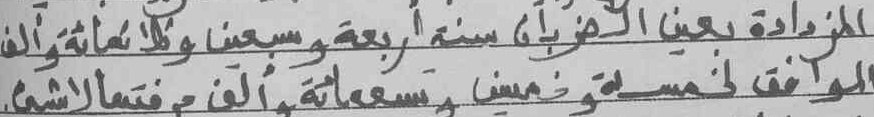 المزدادة بعين الخزبان سنة أربعة وسبعين وثلاثمائة وألف
الموافق لخمسة وخمسين وتسعمائة وألف م فتمالاشي